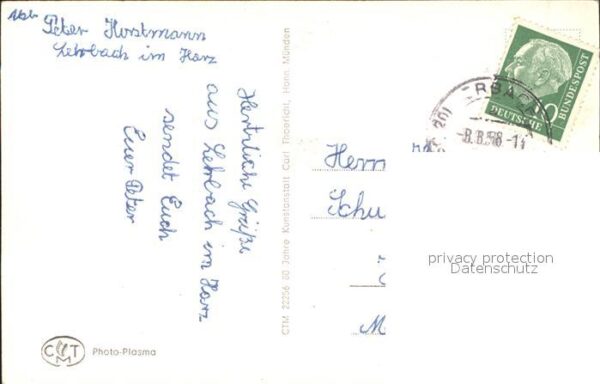 Abs. Peter Horstmann
Lerbach im Harz
Herzliche Grüße
aus Lerbach im Harz
sendet Euch
Euer Peter
CTM 22256 60 Jahre Kunstanstalt Carl Thoericht, Hann. Münden
CTM
Photo-Plasma
10
DEUTSCHE
BUNDESPOST
ERBACH
-8.8.58-11
Herrn
Schu
M
privacy protection
Datenschutz